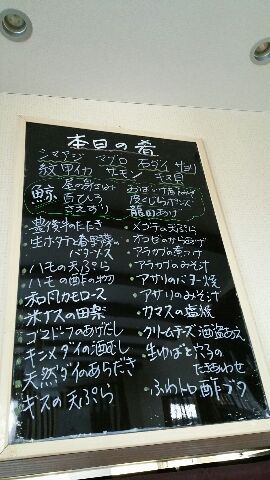 本日の肴
シマアジ マグロ 石ダイ サヨリ
紋甲イカ サーモン 平貝
鯨
百ひろ
さえずり
おばいけ
皮くじらポン酢
龍田あげ
豊後牛たたき
生ホタテと春野菜の
バターソース
ハモの天ぷら
ハモの酢の物
和風カモロース
米ナスの田楽
ゴマドフのあげだし
キンメダイの酒むし
天然ダイのあらだき
キスの天ぷら
メゴチの天ぷら
オコゼのからあげ
アラカブの煮つけ
アラカブのみそ汁
アサリのバター焼
アサリのみそ汁
カマスの塩焼
クリームチーズ酒盗あえ
生ゆばと穴子の
たまあわせ
ふわトロ酢ブタ